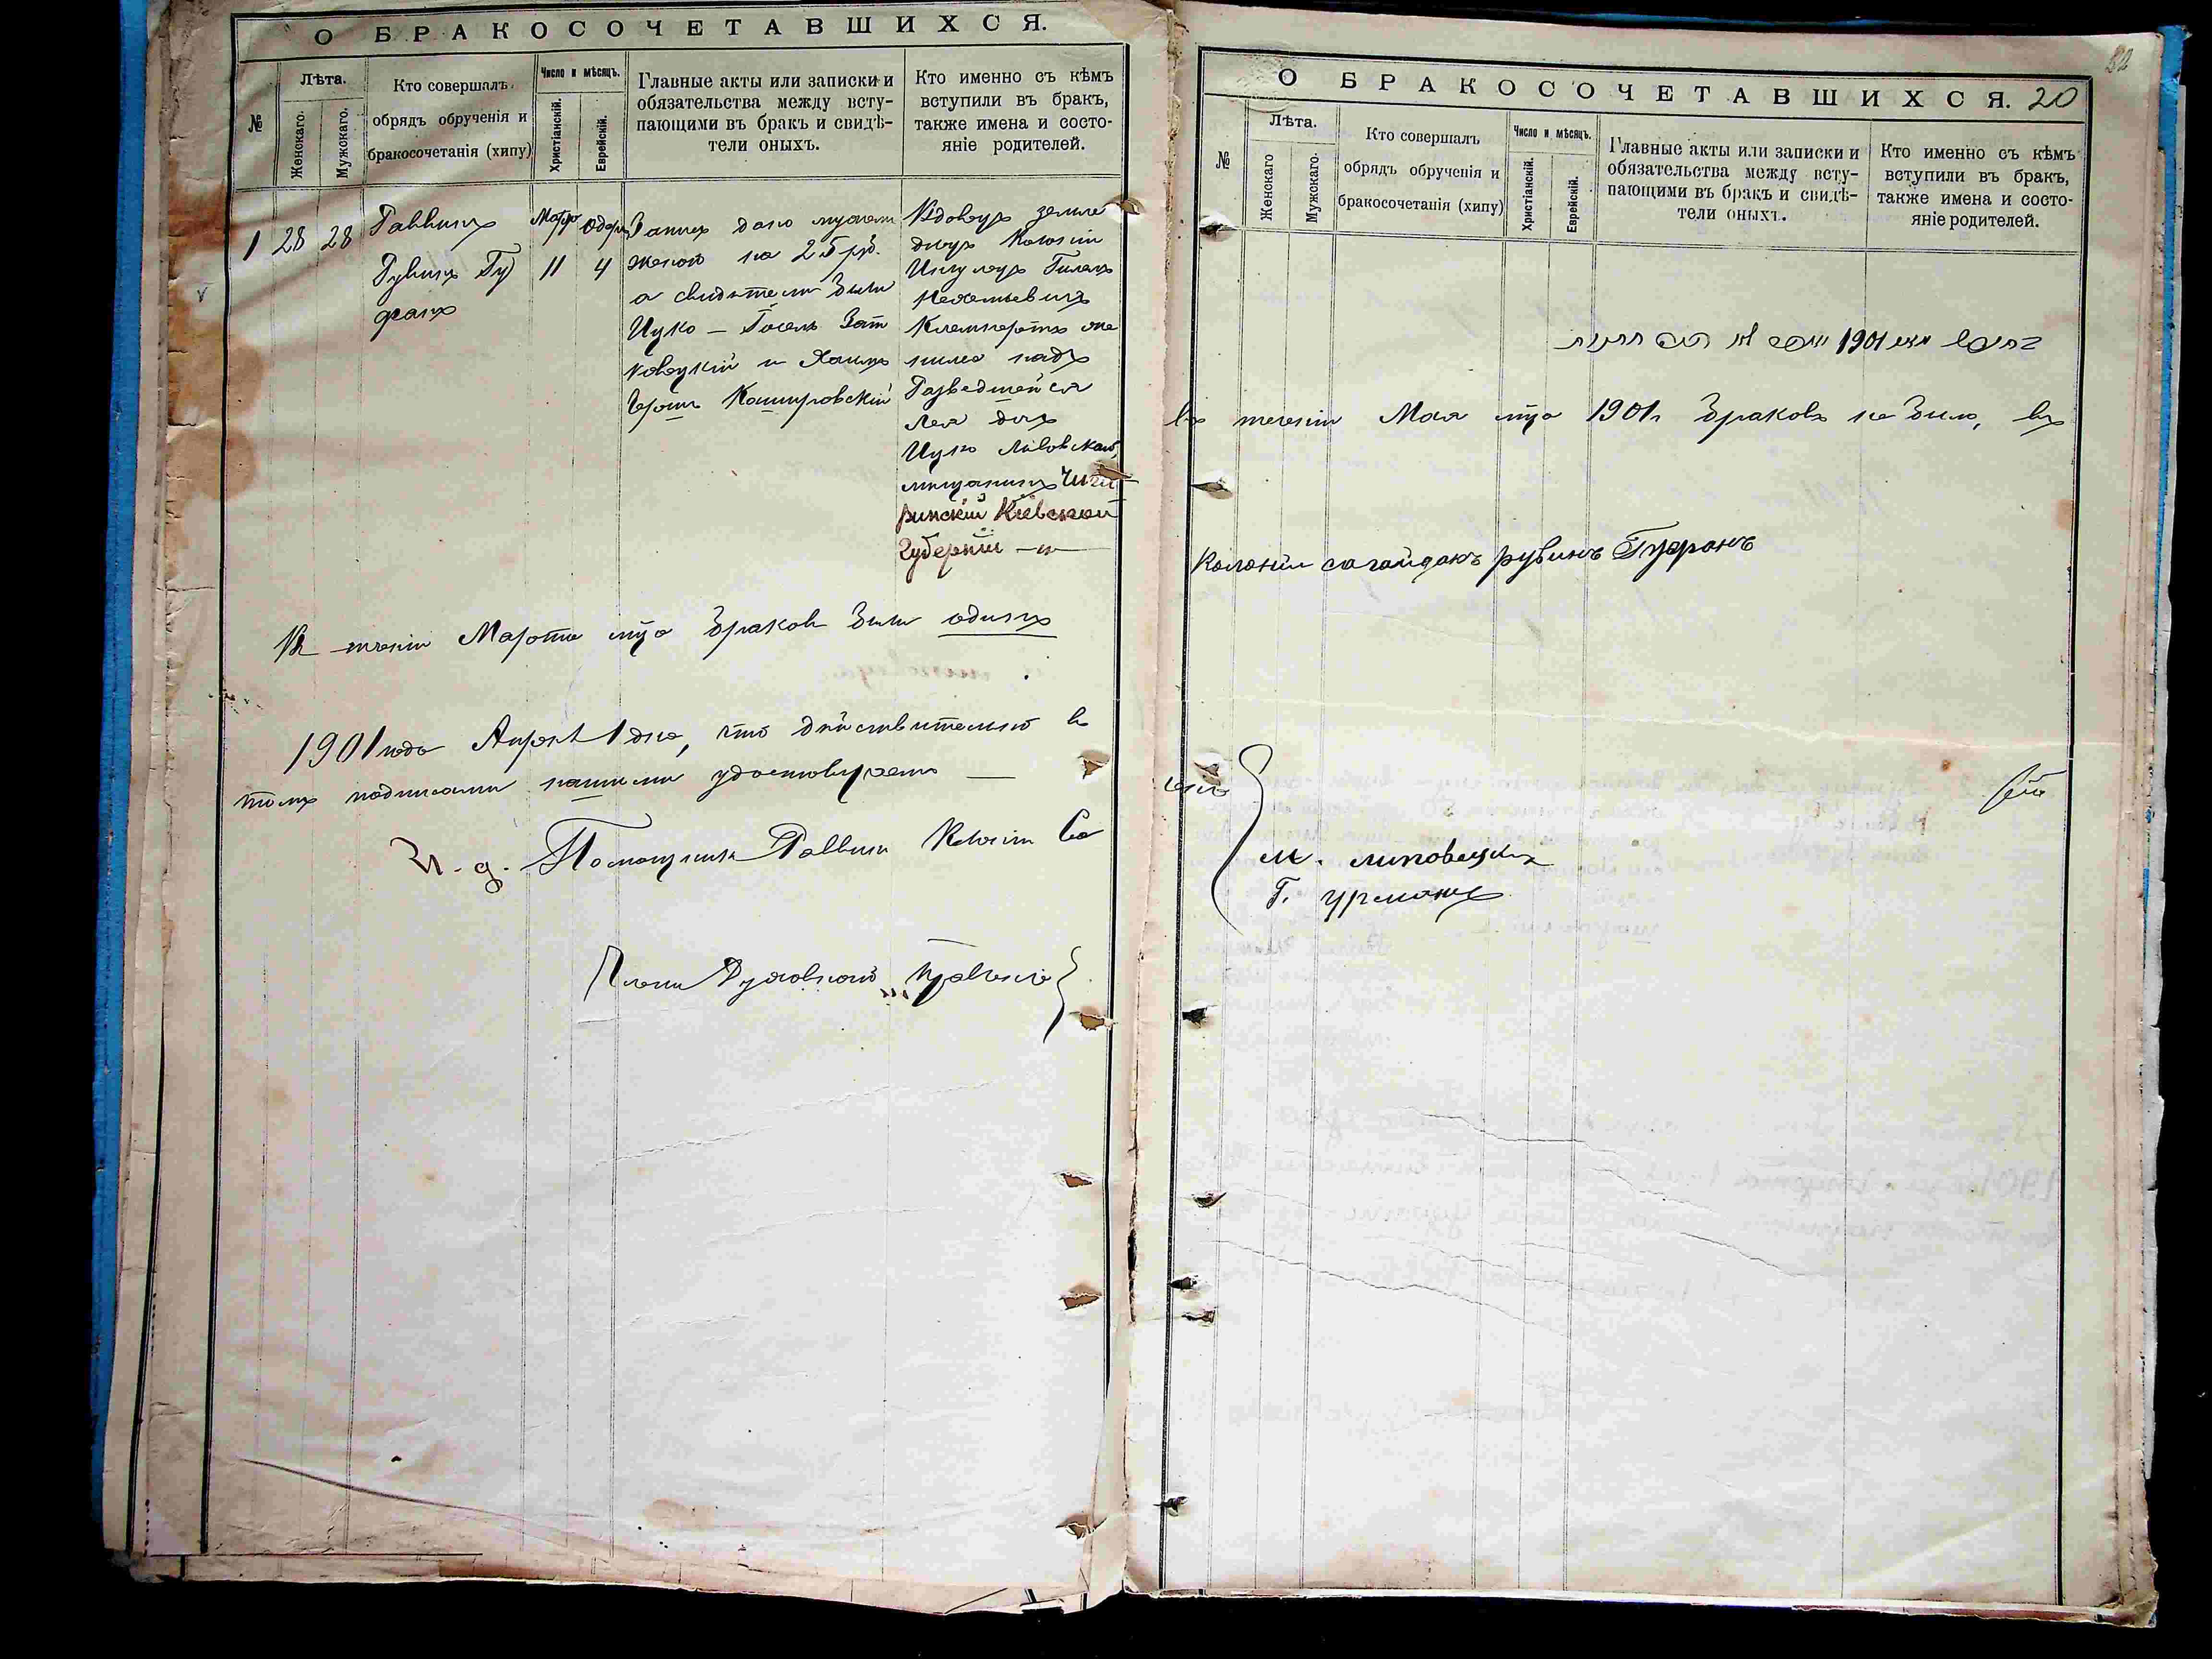 О БРАКОСОЧЕТАВШИХСЯ.
№
Лѣта.
Женскаго.
Мужскаго.
Кто совершалъ
обрядъ обрученія и
бракосочетанія (хипу)
Число и мѣсяцъ.
Христіанскій.
Еврейскій.
Главные акты или записки и
обязательства между всту-
пающими въ бракъ и свидѣ-
тели оныхъ.
Кто именно съ кѣмъ
вступили въ бракъ,
также имена и состо-
яніе родителей.
1
28
28
Раввинъ
Рувинъ Гу
фанъ
Мартъ
11
Одаръ
4
Запись дано мужем
женой на 25 рб.
а свидѣтели были
Ицко – Іосель Зат
ковецкій и Хаимъ
Герошъ Кошировскій
Вдовецъ земле
дѣлецъ Колоніи
Ингулецъ Гилелъ
Нехемьевичъ
Клемпертъ же
нился надъ
Разведшейся
Лея дочь
Ицко Львовской,
мѣщанинъ Чиги
ринскій Кіевской
Губерніи
Въ теченіи Марта м-ца браковъ были одинъ
1901 года Апрѣля 1 дня, что дѣйствительно въ
томъ подписами нашими удостовѣряемъ
И. д. Помощника Раввина Колоніи Са
Члены Духовнаго Правленія
О БРАКОСОЧЕТАВШИХСЯ. 20
№
Лѣта.
Женскаго
Мужскаго.
Кто совершалъ
обрядъ обрученія и
бракосочетанія (хипу)
Число и мѣсяцъ.
Христіанскій.
Еврейскій.
Главные акты или записки и
обязательства между всту-
пающими въ бракъ и свидѣ-
тели оныхъ.
Кто именно съ кѣмъ
вступили въ бракъ,
также имена и состо-
яніе родителей.
1901
Въ теченіи Мая м-ца 1901 г. браковъ не было, въ
Колоніи сагайдакъ рувинъ Гуфранъ
М. липовецкій
Г. урманъ